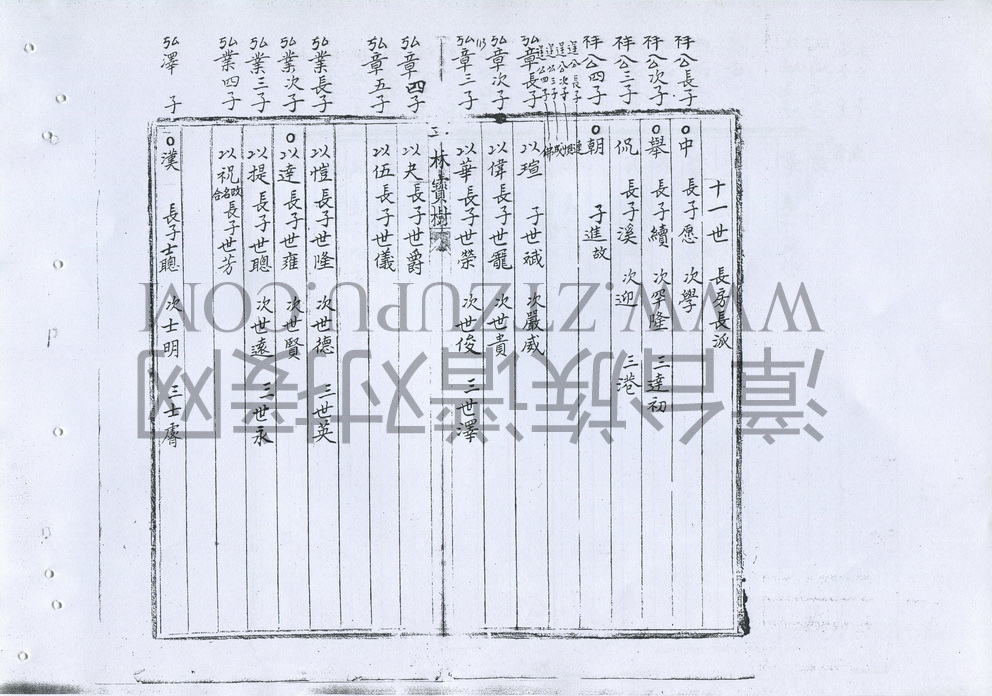 十一世 長房長派
祥公長子
中 長子愿 次學
祥公次子
舉 長子續 次罕隆 三達初
祥公三子
侃 長子溪 次迎 三港
祥公四子
朝 子進故
選公長子
選公次子
選公三子
選公四子
弘章長子
以瑄 子世珹 次嚴威
弘章次子
以偉 長子世龍 次世貴
弘章三子
以華 長子世榮 次世俊 三世澤
林寶樹
弘章四子
以夬 長子世爵
弘章五子
以伍 長子世儀
弘業長子
以愷 長子世隆 次世德 三世英
弘業次子
以達 長子世雍 次世賢
弘業三子
以提 長子世聰 次世遠 三世永
弘業四子
以祝 改名合 長子世芳
弘澤 子
漢 長子士聰 次士明 三士膺
WWW.ZTZUPU.COM
漳台族谱对接网